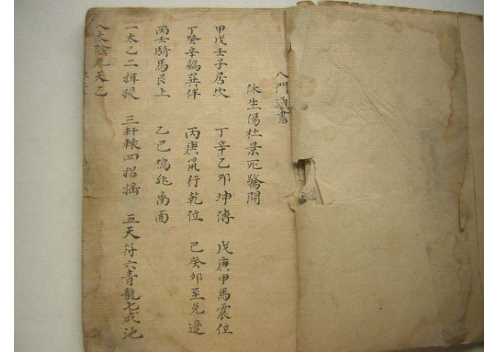 八門書
休生傷杜景死驚開
甲戊壬子居坎 丁辛乙卯坤傳 戊庚甲馬震位
丁癸辛鷄巽伴 丙庚鼠行乾位 己癸卯至兌邊
丙壬騎馬艮上 乙己鷄飛离面
一太乙二攝提 三軒轅四招搖 五天符六青龍七咸池
八太陰九天乙